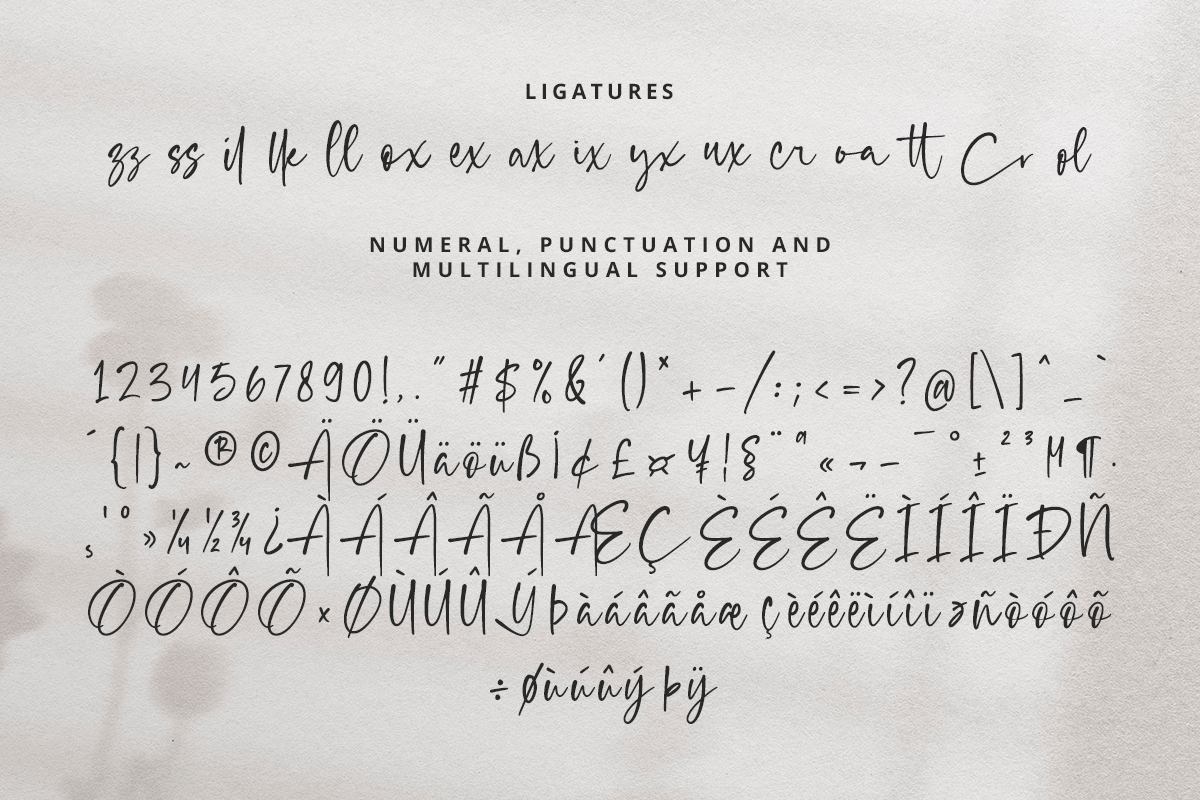 LIGATURES
zz ss il lk ll ox ex ax ix yx ux cr oa tt Cr ol
NUMERAL, PUNCTUATION AND
MULTILINGUAL SUPPORT
1234567890!,."#$%&'()*+-/:;<=>?@[\]^_`
´{|}~®©ÄÖÜäöüß¡¢£¤¥¦§¨ª«¬–¯°±²³µ¶·
¸¹º»¼½¾¿ÀÁÂÃÅÆÇÈÉÊËÌÍÎÏÐÑ
ÒÓÔÕ×ØÙÚÛÝÞàáâãåæçèéêëìíîïðñòóôõ
÷øùúûýþÿ